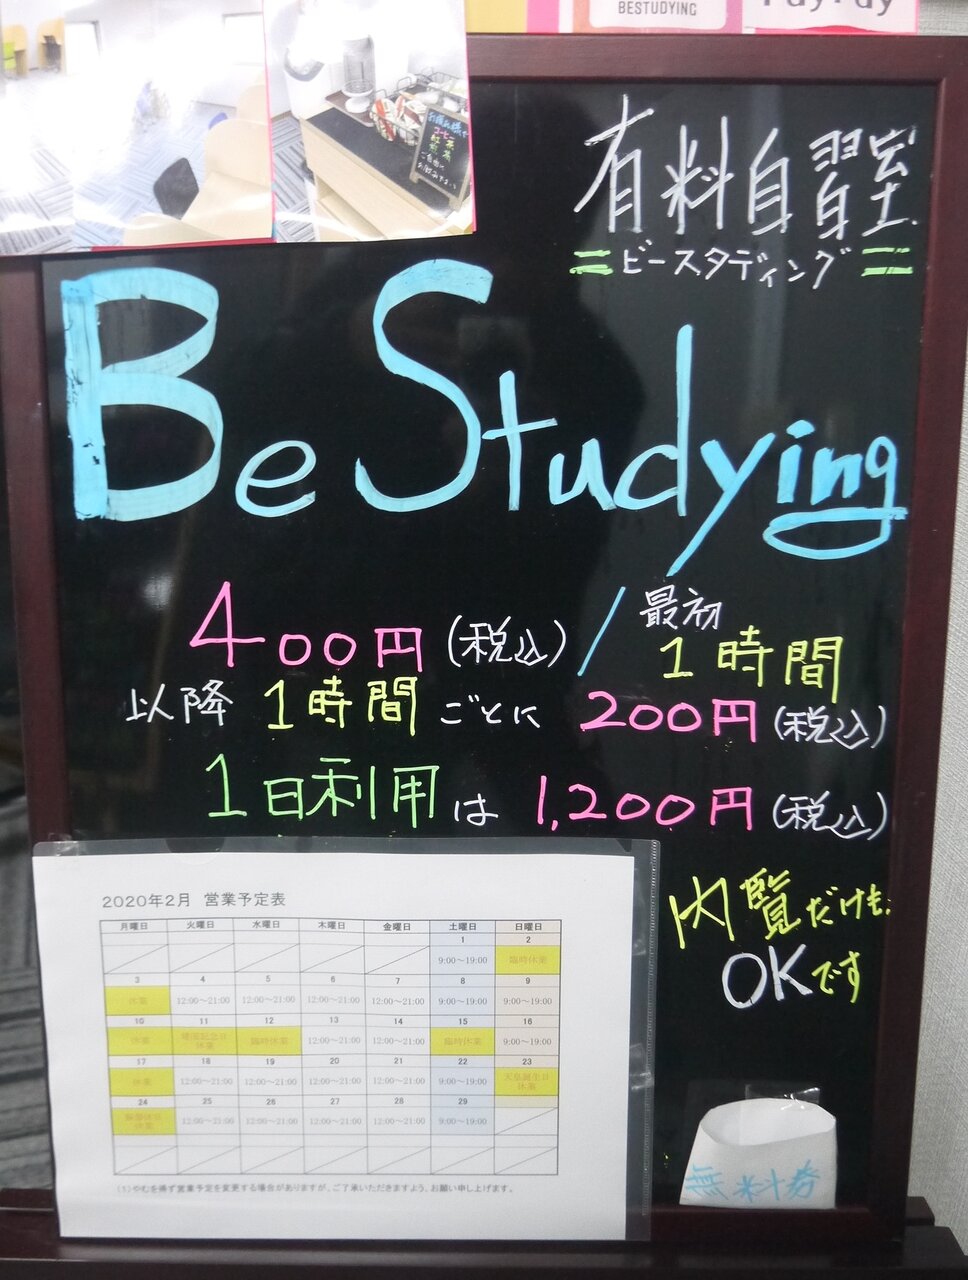 BESTUDYING
PayPay
コーヒー
有料自習室
=ビースタディング=
Be Studying
400円(税込)/最初1時間
以降1時間ごとに200円(税込)
1日利用は1,200円(税込)
内覧だけも
OKです
無料券
2020年2月 営業予定表
月曜日 火曜日 水曜日 木曜日 金曜日 土曜日 日曜日
1 2
9:00～19:00 臨時休業
3 4 5 6 7 8 9
休業 12:00～21:00 12:00～21:00 12:00～21:00 12:00～21:00 9:00～19:00 9:00～19:00
10 11 12 13 14 15 16
休業 建国記念日 休業 臨時休業 12:00～21:00 12:00～21:00 臨時休業 9:00～19:00
17 18 19 20 21 22 23
休業 12:00～21:00 12:00～21:00 12:00～21:00 12:00～21:00 9:00～19:00 天皇誕生日 休業
24 25 26 27 28 29
振替休日 休業 12:00～21:00 12:00～21:00 12:00～21:00 12:00～21:00 9:00～19:00
(1)やむを得ず営業予定を変更する場合がありますが、ご了承いただきますよう、お願い申し上げます。